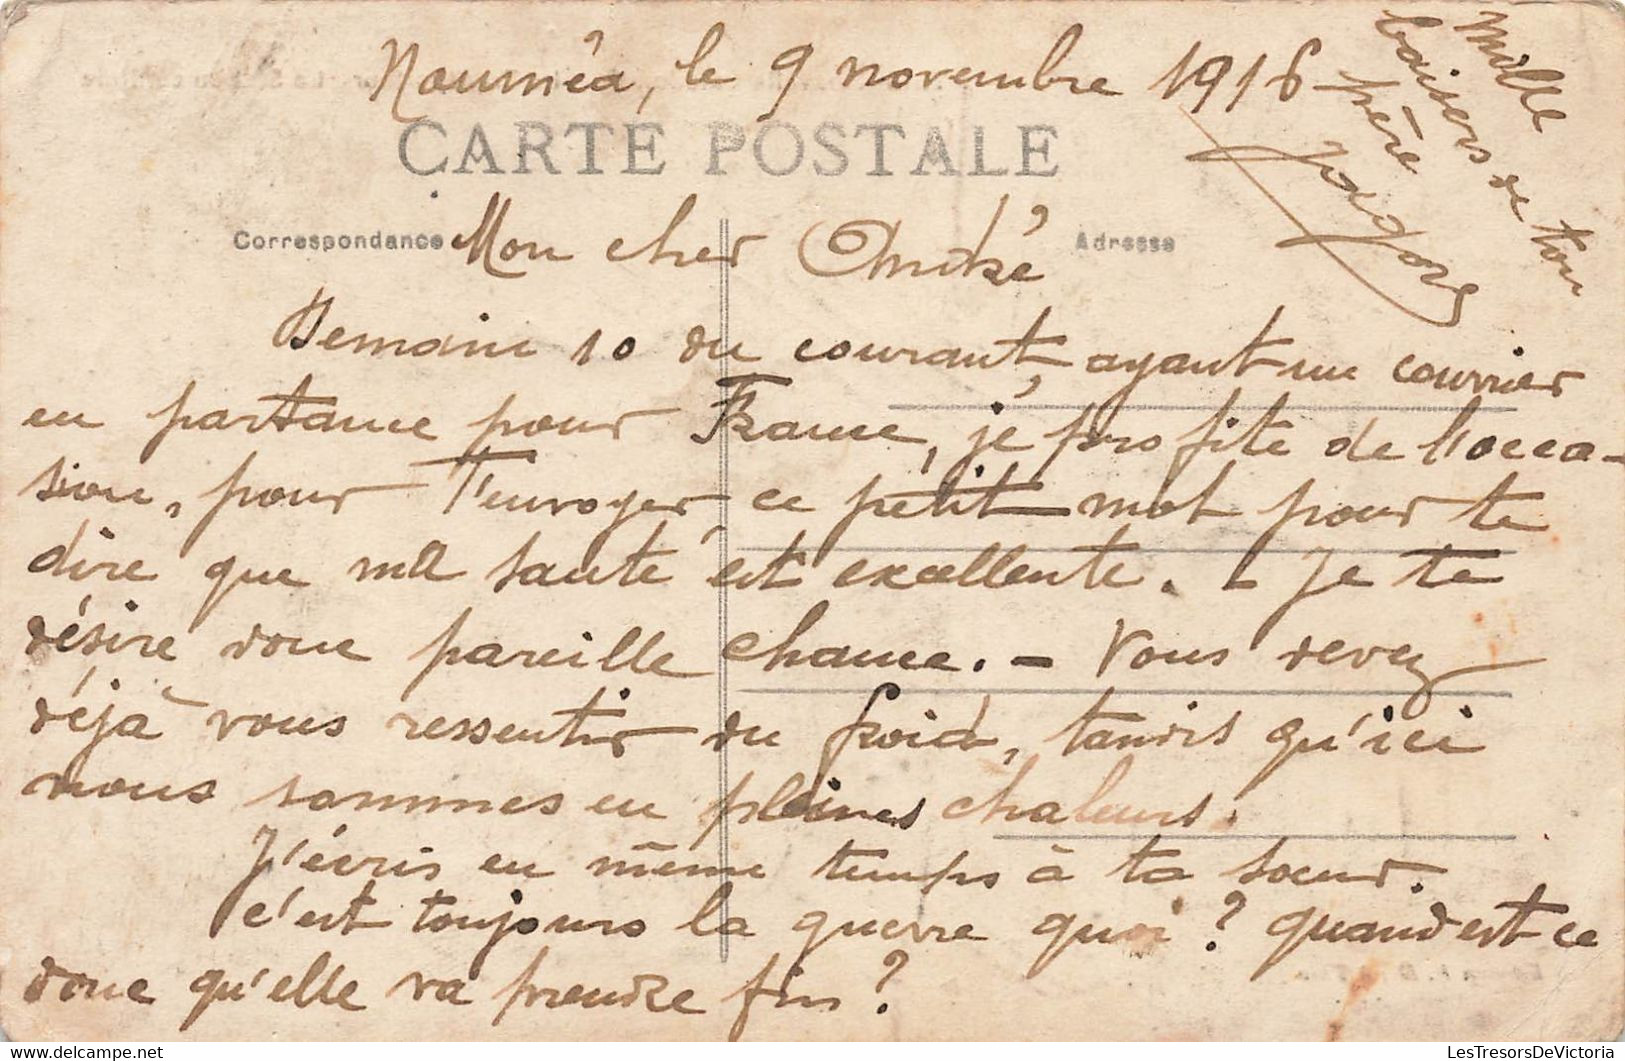 Nouméa, le 9 novembre 1916
CARTE POSTALE
Correspondance
Adresse
Mon cher André
Demain 10 du courant, ayant un courrier
en partance pour France, je profite de l'occa-
sion, pour T'envoyer, ce petit mot pour te
dire que ma santé est excellente. - Je te
désire donc pareille chance. - Vous devez
déjà vous ressentir du froid, tandis qu'ici
nous sommes en pleines chaleurs.
J'écris en même temps à ta soeur.
C'est toujours la guerre quoi ? quand est ce
donc qu'elle va prendre fin ?
Mille
baisers de ton
père
LesTresorsDeVictoria